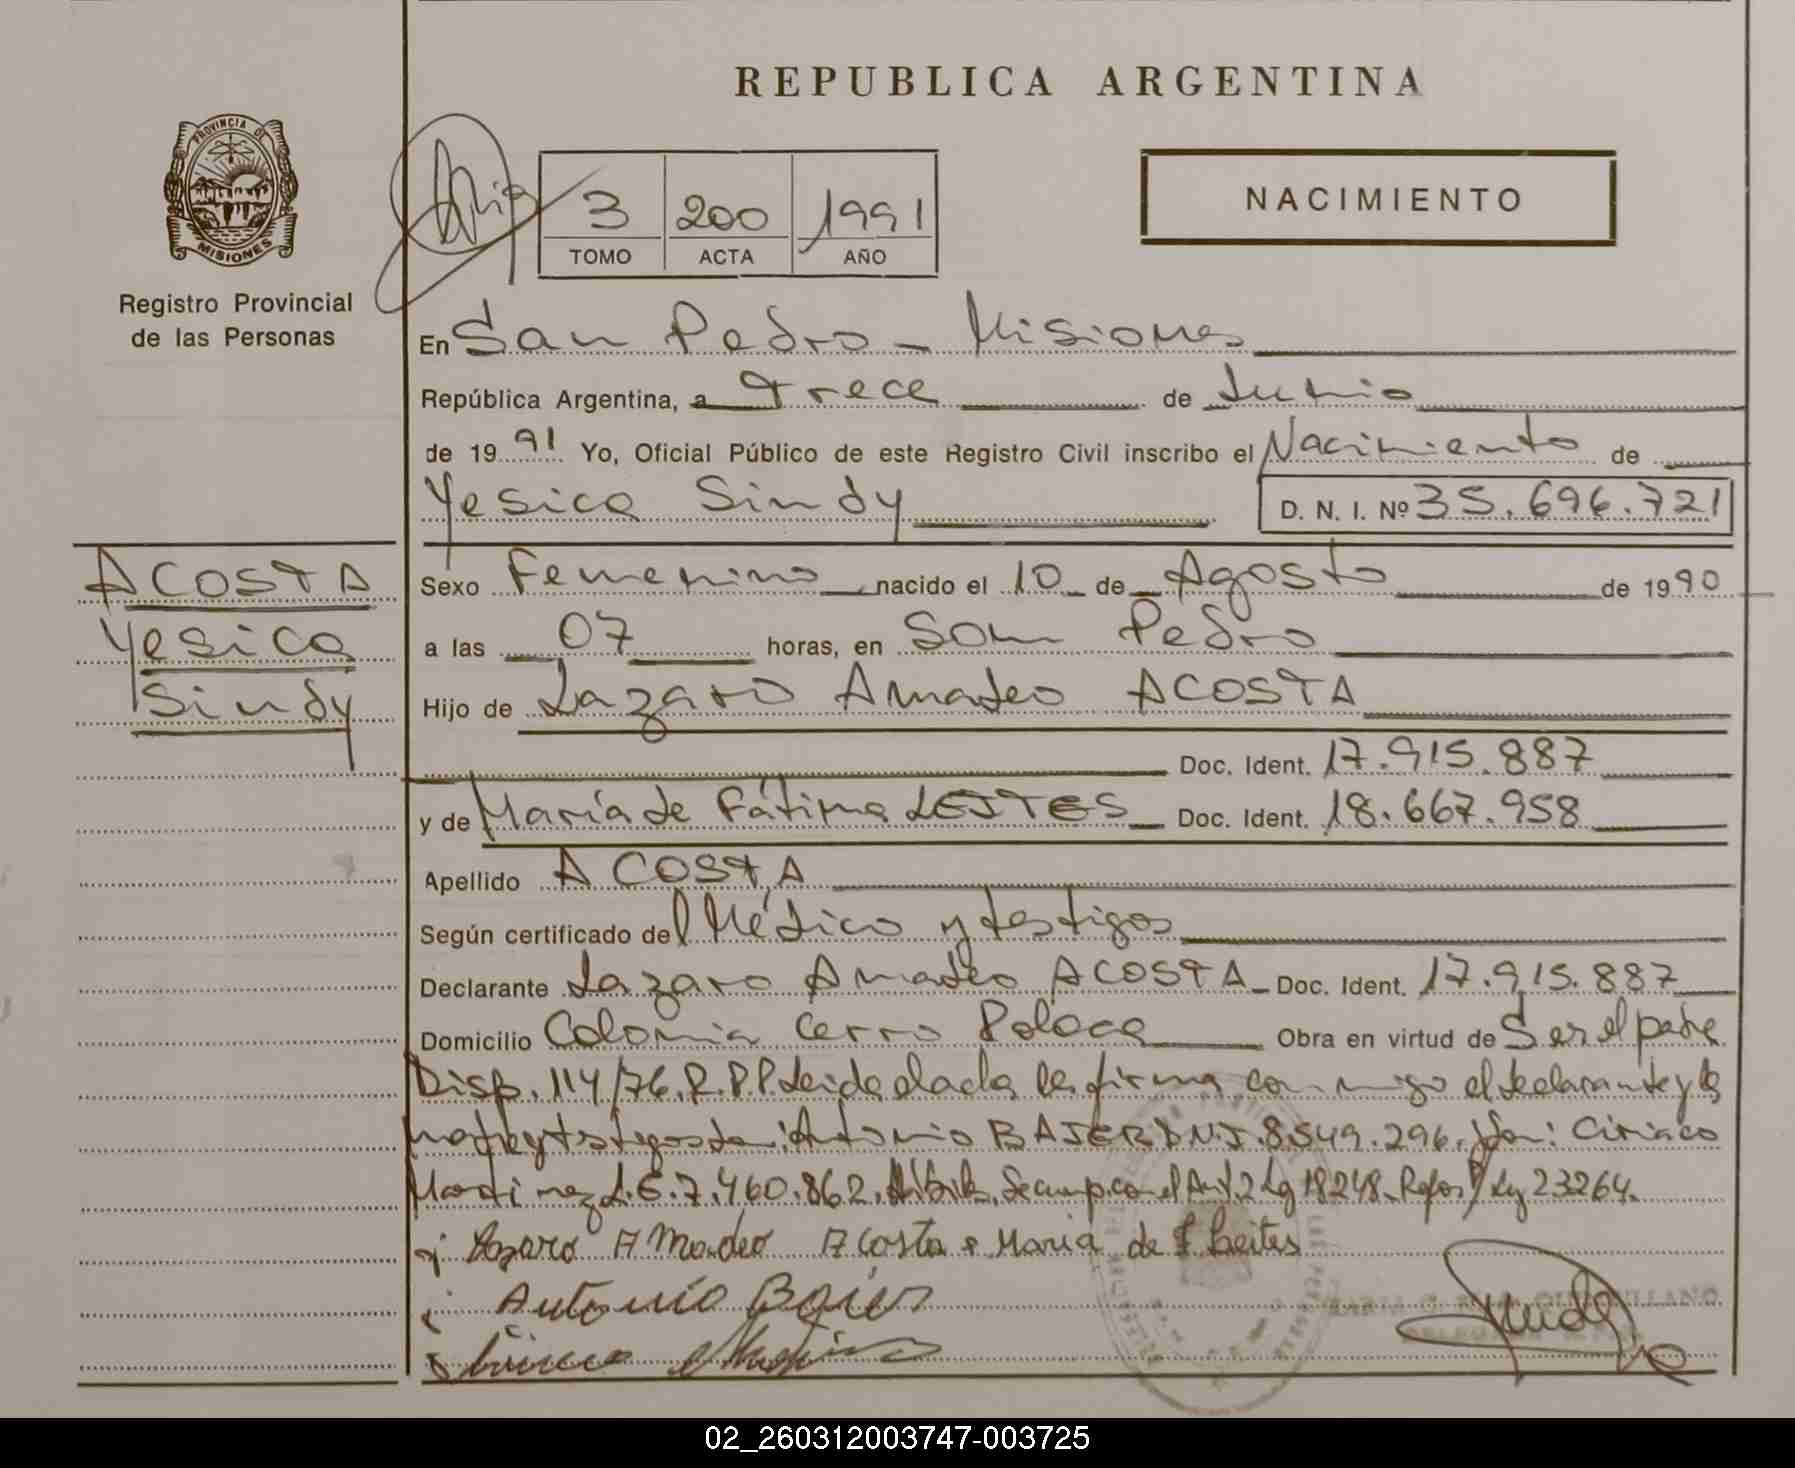 REPUBLICA ARGENTINA
PROVINCIA DE
MISIONES
Registro Provincial
de las Personas
3 200 1991
TOMO ACTA AÑO
NACIMIENTO
En San Pedro - Misiones
República Argentina, a Trece de Junio
de 1991 Yo, Oficial Público de este Registro Civil inscribo el Nacimiento de
Yesica Sindy D. N. I. Nº 35.696.721
ACOSTA
Yesica
Sindy
Sexo Femenino nacido el 10 de Agosto de 1990
a las 07 horas, en San Pedro
Hijo de Lazaro Amadeo ACOSTA
Doc. Ident. 17.915.887
y de María de Fátima LEITES Doc. Ident. 18.667.958
Apellido ACOSTA
Según certificado del Médico y testigos
Declarante Lazaro Amadeo ACOSTA Doc. Ident. 17.915.887
Domicilio Colonia Cerro Obra en virtud de Ser el padre
Disp. 114/76.R.P.P. Leida el acta, la firma con migo el declarante y la
madre y testigos Antonio BAJER D.N.I. 8.549.296. Ciriaco
Martinez L.E. 7.460.862. Se cump. con el Art. 2 Ley 18248. Ley 23264.
Lazaro Amadeo Acosta Maria de F Leites
Antonio Bajer
02_260312003747-003725